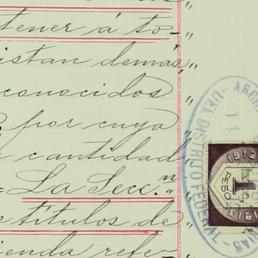 tener á to-
istan demás
conocidos
por cuyo
cantidad
= La Secc.n
títulos de
ienda refe-
DEL DISTRITO FEDERAL
1912
1
PESO
1913